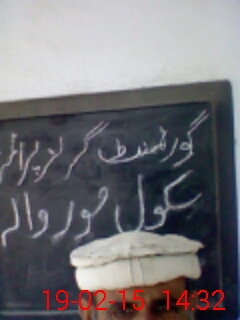 گورنمنٹ گرلز پرائمر
سکول موروالہ
19-02-15 14:32